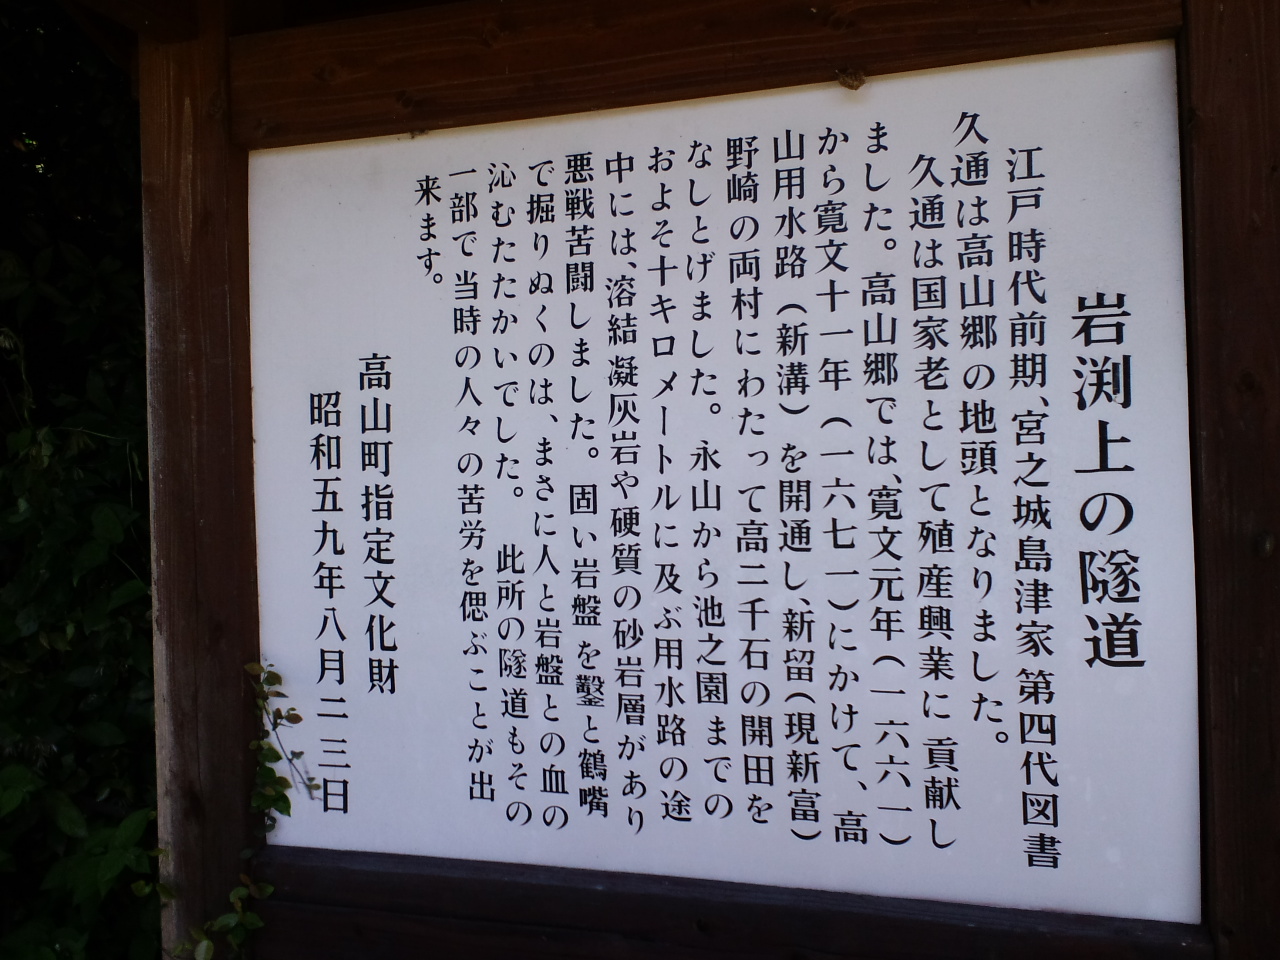 岩渕上の隧道
江戸時代前期、宮之城島津家第四代図書
久通は高山郷の地頭となりました。
久通は国家老として殖産興業に貢献し
ました。高山郷では、寛文元年(一六六一)
から寛文十一年(一六七一)にかけて、高
山用水路(新溝)を開通し、新留(現新富)
野崎の両村にわたって高二千石の開田を
なしとげました。永山から池之園までの
およそ十キロメートルに及ぶ用水路の途
中には、溶結凝灰岩や硬質の砂岩層があり
悪戦苦闘しました。固い岩盤を鑿と鶴嘴
で掘りぬくのは、まさに人と岩盤との血の
沁むたたかいでした。此所の隧道もその
一部で当時の人々の苦労を偲ぶことが出
来ます。
高山町指定文化財
昭和五九年八月二三日